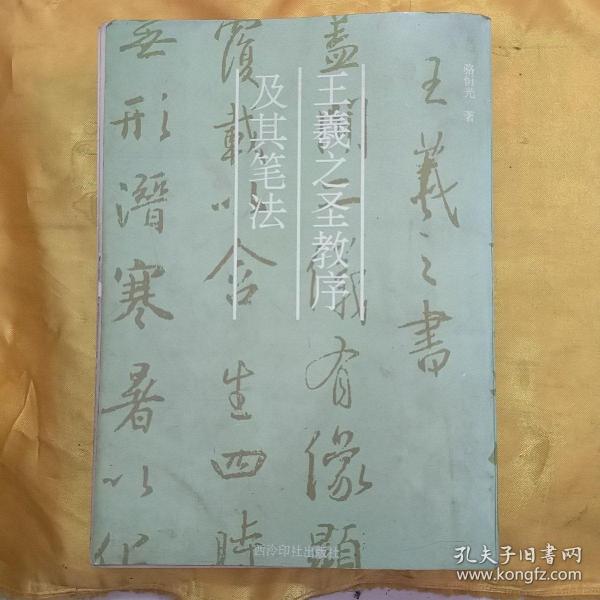 王羲之圣教序
及其笔法
骆恒光 著
王羲之書
蓋聞二儀有像顯
覆載以含生四時
無形潛寒暑以化
西泠印社出版社
孔夫子旧书网
www.kongfz.com